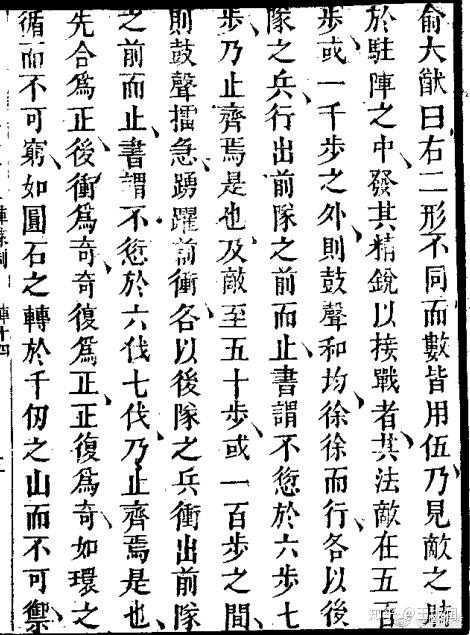 俞大猷曰右二形不同而數皆用伍乃見敵之時
於駐陣之中發其精銳以接戰者其法敵在五百
步或一千步之外則鼓聲和均徐徐而行各以後
隊之兵行出前隊之前而止書謂不愆於六步七
步乃止齊焉是也及敵至五十步或一百步之間
則鼓聲擂急踴躍前衝各以後隊之兵衝出前隊
之前而止書謂不愆於六伐七伐乃止齊焉是也
先合爲正後衝爲奇奇復爲正正復爲奇如環之
循而不可窮如圓石之轉於千仞之山而不可禦